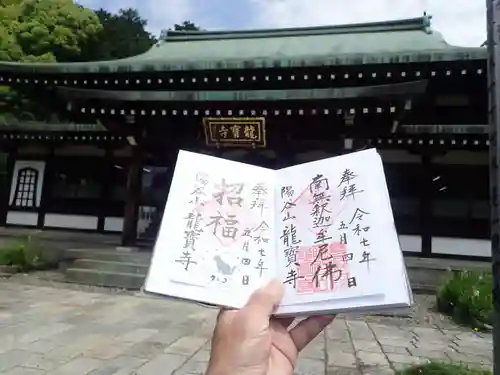 龍寶寺
奉拝
令和七年
五月四日
南無釈迦牟尼佛
陽谷山 龍寶寺
奉拝
令和七年
五月四日
招福
陽谷山 龍寶寺